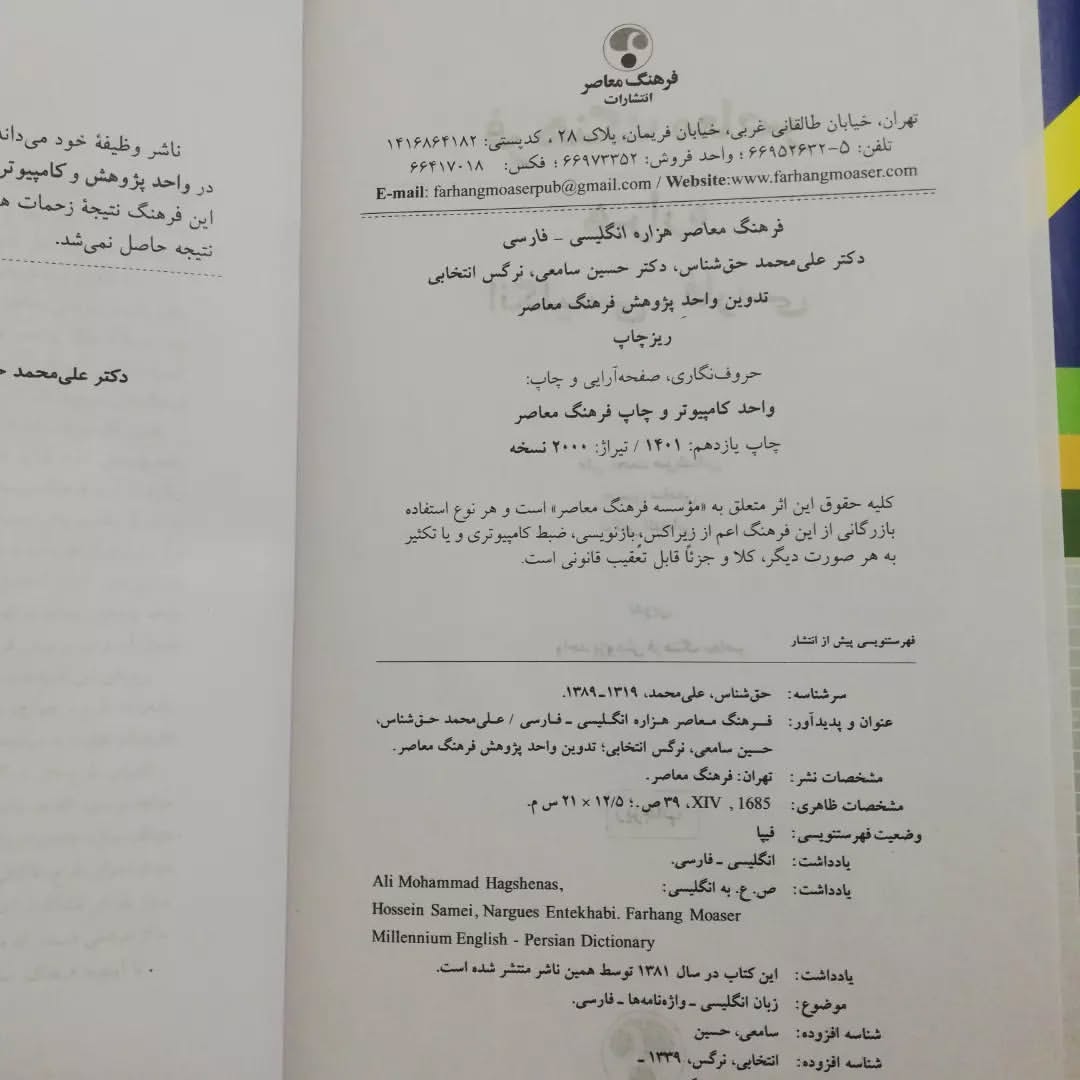 فرهنگ معاصر
انتشارات
تهران، خیابان طالقانی غربی، خیابان فریمان، پلاک ۲۸، کدپستی: ۱۴۱۶۸۶۴۱۸۲
تلفن: ۵-۶۶۹۵۲۶۳۲؛ واحد فروش: ۶۶۹۷۳۳۵۲؛ فکس: ۶۶۴۱۷۰۱۸
E-mail: farhangmoaserpub@gmail.com / Website:www.farhangmoaser.com
فرهنگ معاصر هزاره انگلیسی ـ فارسی
دکتر علی‌محمد حق‌شناس، دکتر حسین سامعی، نرگس انتخابی
تدوین واحدِ پژوهش فرهنگ معاصر
ریزچاپ
حروف‌نگاری، صفحه‌آرایی و چاپ:
واحد کامپیوتر و چاپ فرهنگ معاصر
چاپ یازدهم: ۱۴۰۱ / تیراژ: ۲۰۰۰ نسخه
کلیه حقوق این اثر متعلق به «مؤسسه فرهنگ معاصر» است و هر نوع استفاده
بازرگانی از این فرهنگ اعم از زیراکس، بازنویسی، ضبط کامپیوتری و یا تکثیر
به هر صورت دیگر، کلا و جزئاً قابل تعقیب قانونی است.
فهرستنویسی پیش از انتشار
سرشناسه: حق‌شناس، علی‌محمد، ۱۳۱۹ـ۱۳۸۹.
عنوان و پدیدآور: فرهنگ معاصر هزاره انگلیسی ـ فارسی / علی‌محمد حق‌شناس،
حسین سامعی، نرگس انتخابی؛ تدوین واحد پژوهش فرهنگ معاصر.
مشخصات نشر: تهران: فرهنگ معاصر.
مشخصات ظاهری: XIV , 1685، ۳۹ ص.؛ ۱۲/۵ × ۲۱ س م.
وضعیت فهرستنویسی: فیپا
یادداشت: انگلیسی ـ فارسی.
یادداشت: ص. ع. به انگلیسی: Ali Mohammad Hagshenas,
Hossein Samei, Nargues Entekhabi. Farhang Moaser
Millennium English - Persian Dictionary
یادداشت: این کتاب در سال ۱۳۸۱ توسط همین ناشر منتشر شده است.
موضوع: زبان انگلیسی ـ واژه‌نامه‌ها ـ فارسی.
شناسه افزوده: سامعی، حسین
شناسه افزوده: انتخابی، نرگس، ۱۳۳۹ ـ
ناشر وظیفهٔ خود می‌داند
در واحد پژوهش و کامپیوتر
این فرهنگ نتیجهٔ زحمات
نتیجه حاصل نمی‌شد.
دکتر علی‌محمد